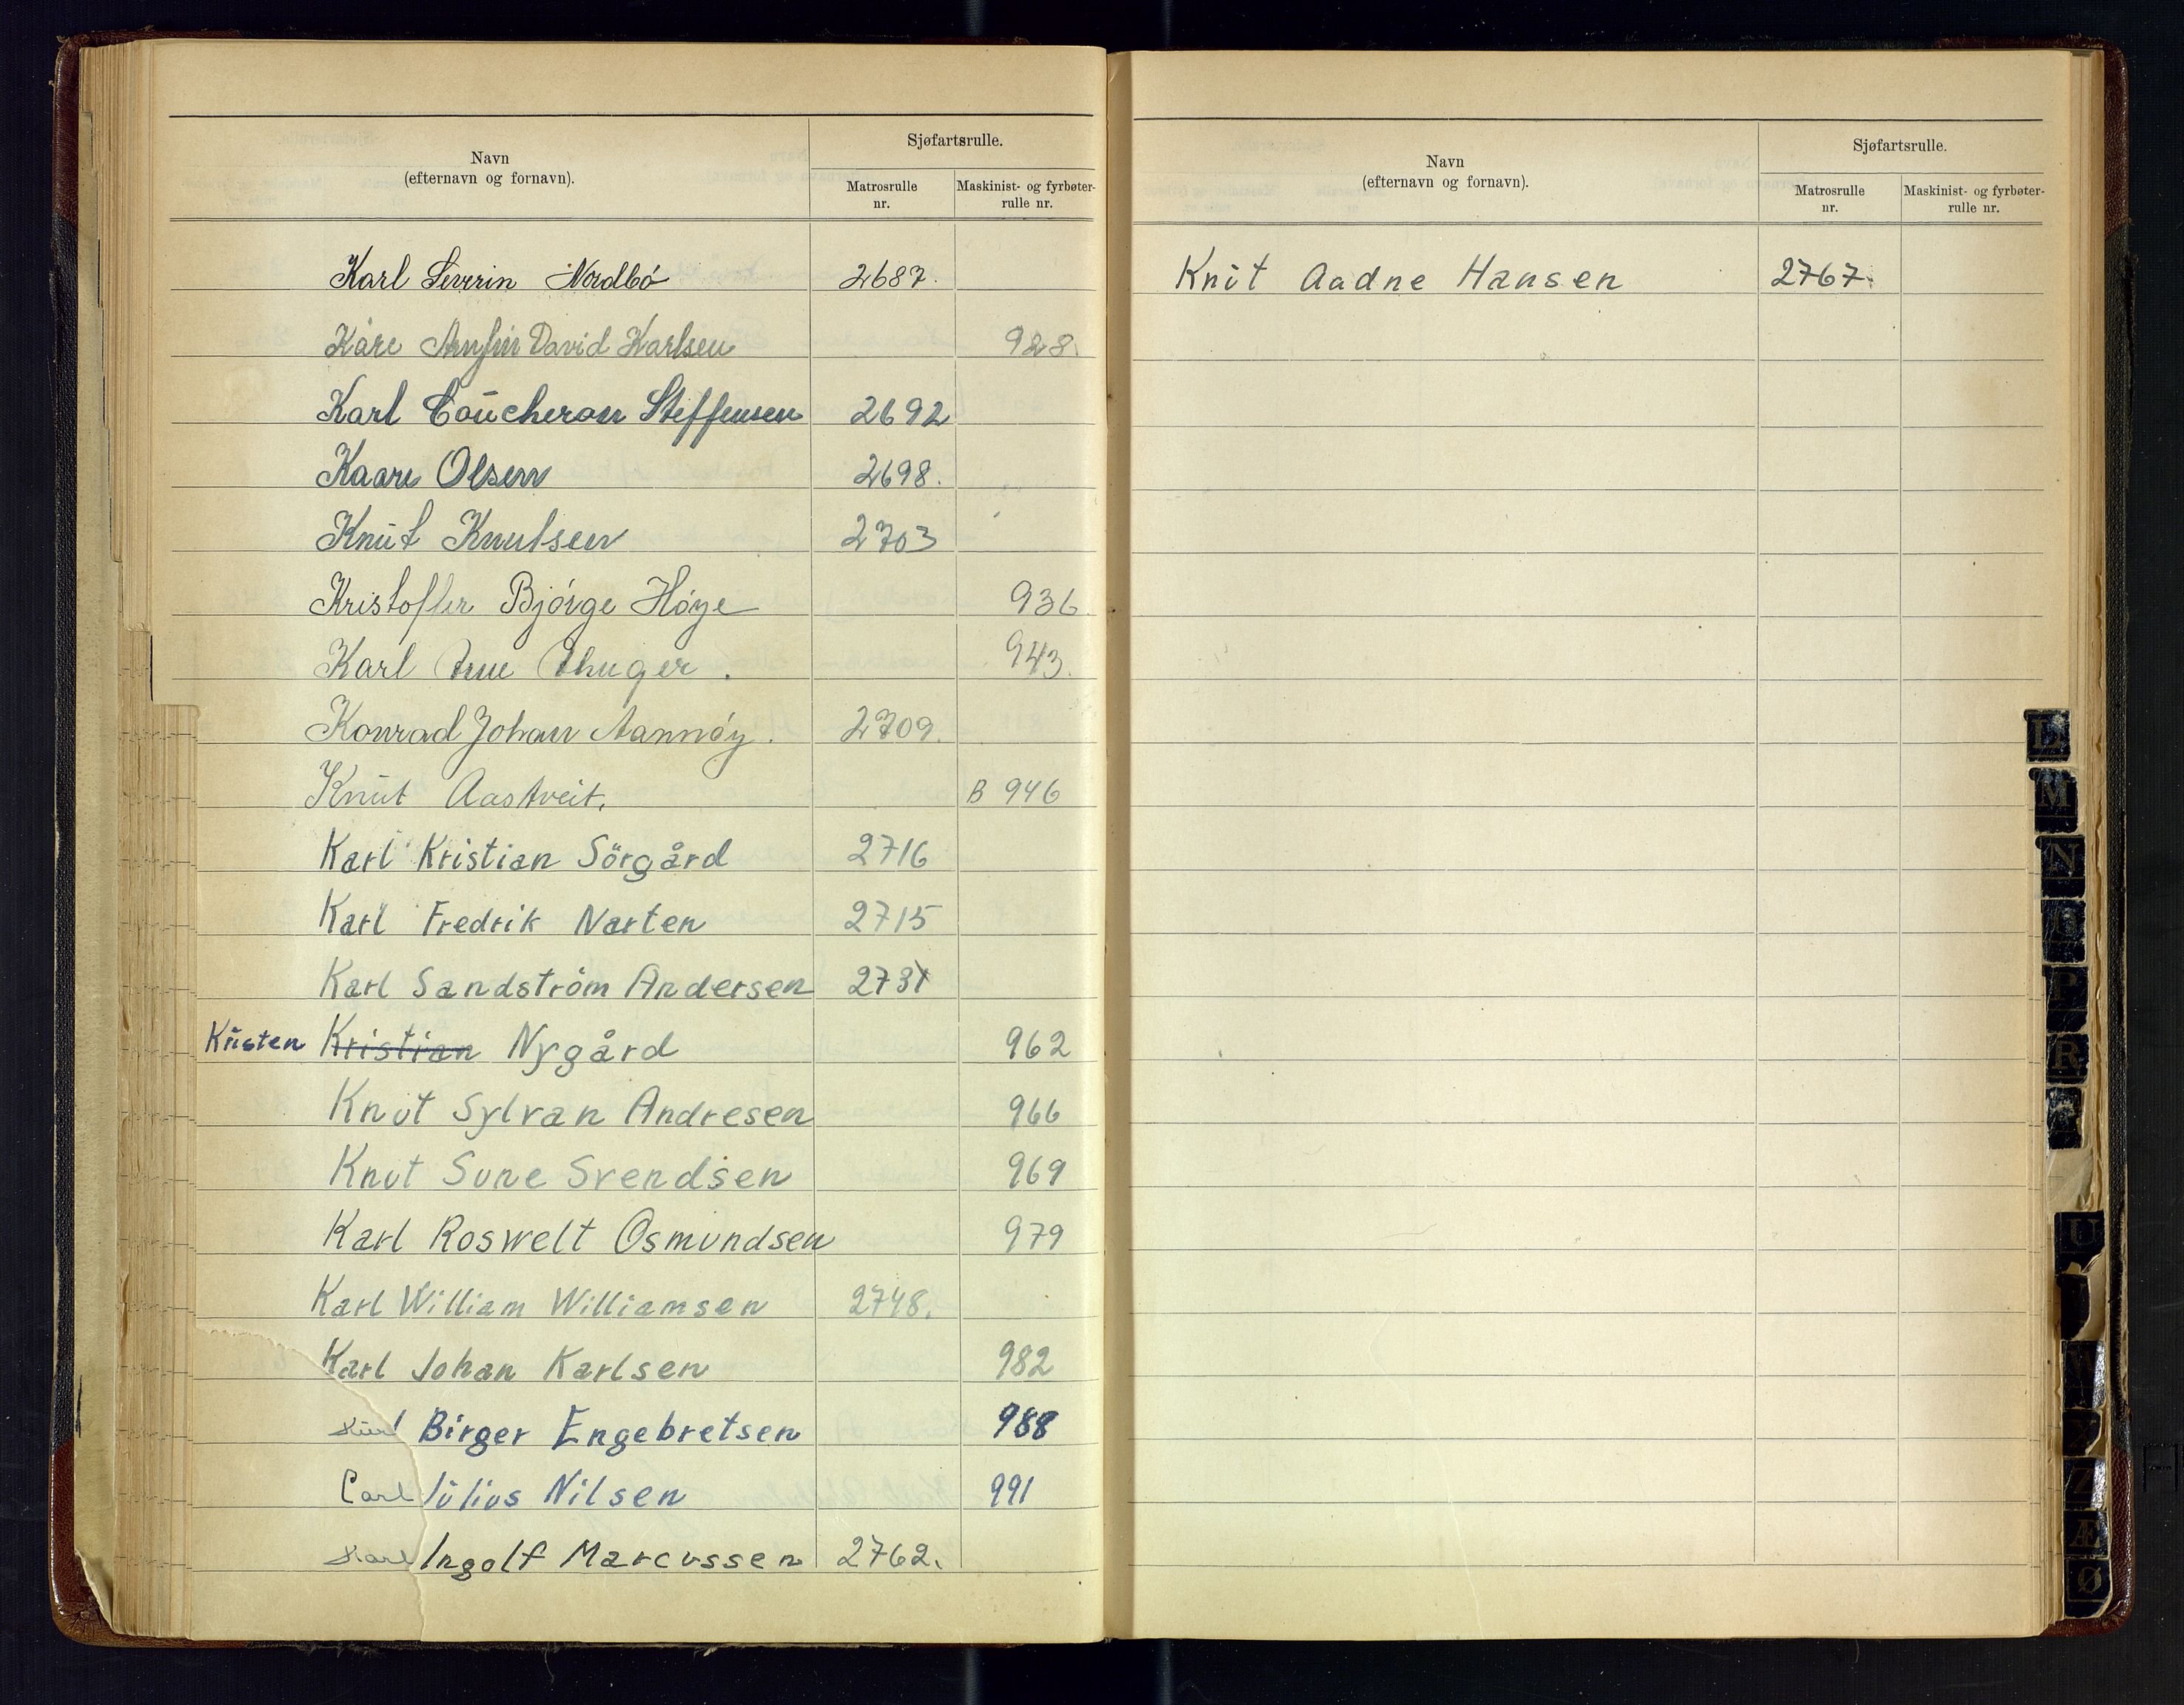 Navn
(efternavn og fornavn).
Sjøfartsrulle.
Matrosrulle
nr.
Maskinist- og fyrbøter-
rulle nr.
Karl Severin Nordbö 2687.
Kåre Arnfin David Karlsen 928.
Karl Coucheron Steffensen 2692
Kaare Olsen 2698.
Knut Knutsen 2703
Kristoffer Bjørge Høye 936.
Karl 943.
Konrad Johan Aannøy. 2709.
Knut Aastveit. B 946
Karl Kristian Sörgård 2716
Karl Fredrik Narten 2715
Karl Sandström Andersen 2731
Kristen Kristian Nygård 962
Knut Sylvan Andresen 966
Knut Sune Svendsen 969
Karl Roswelt Osmundsen 979
Karl William Williamsen 2748.
Karl Johan Karlsen 982
Karl Birger Engebretsen 988
Carl Julius Nilsen 991
Karl Ingolf Marcussen 2762.
Navn
(efternavn og fornavn).
Sjøfartsrulle.
Matrosrulle
nr.
Maskinist- og fyrbøter-
rulle nr.
Knut Aadne Hansen 2767.
L
M
N
P
R
U
Z
Æ
Ø